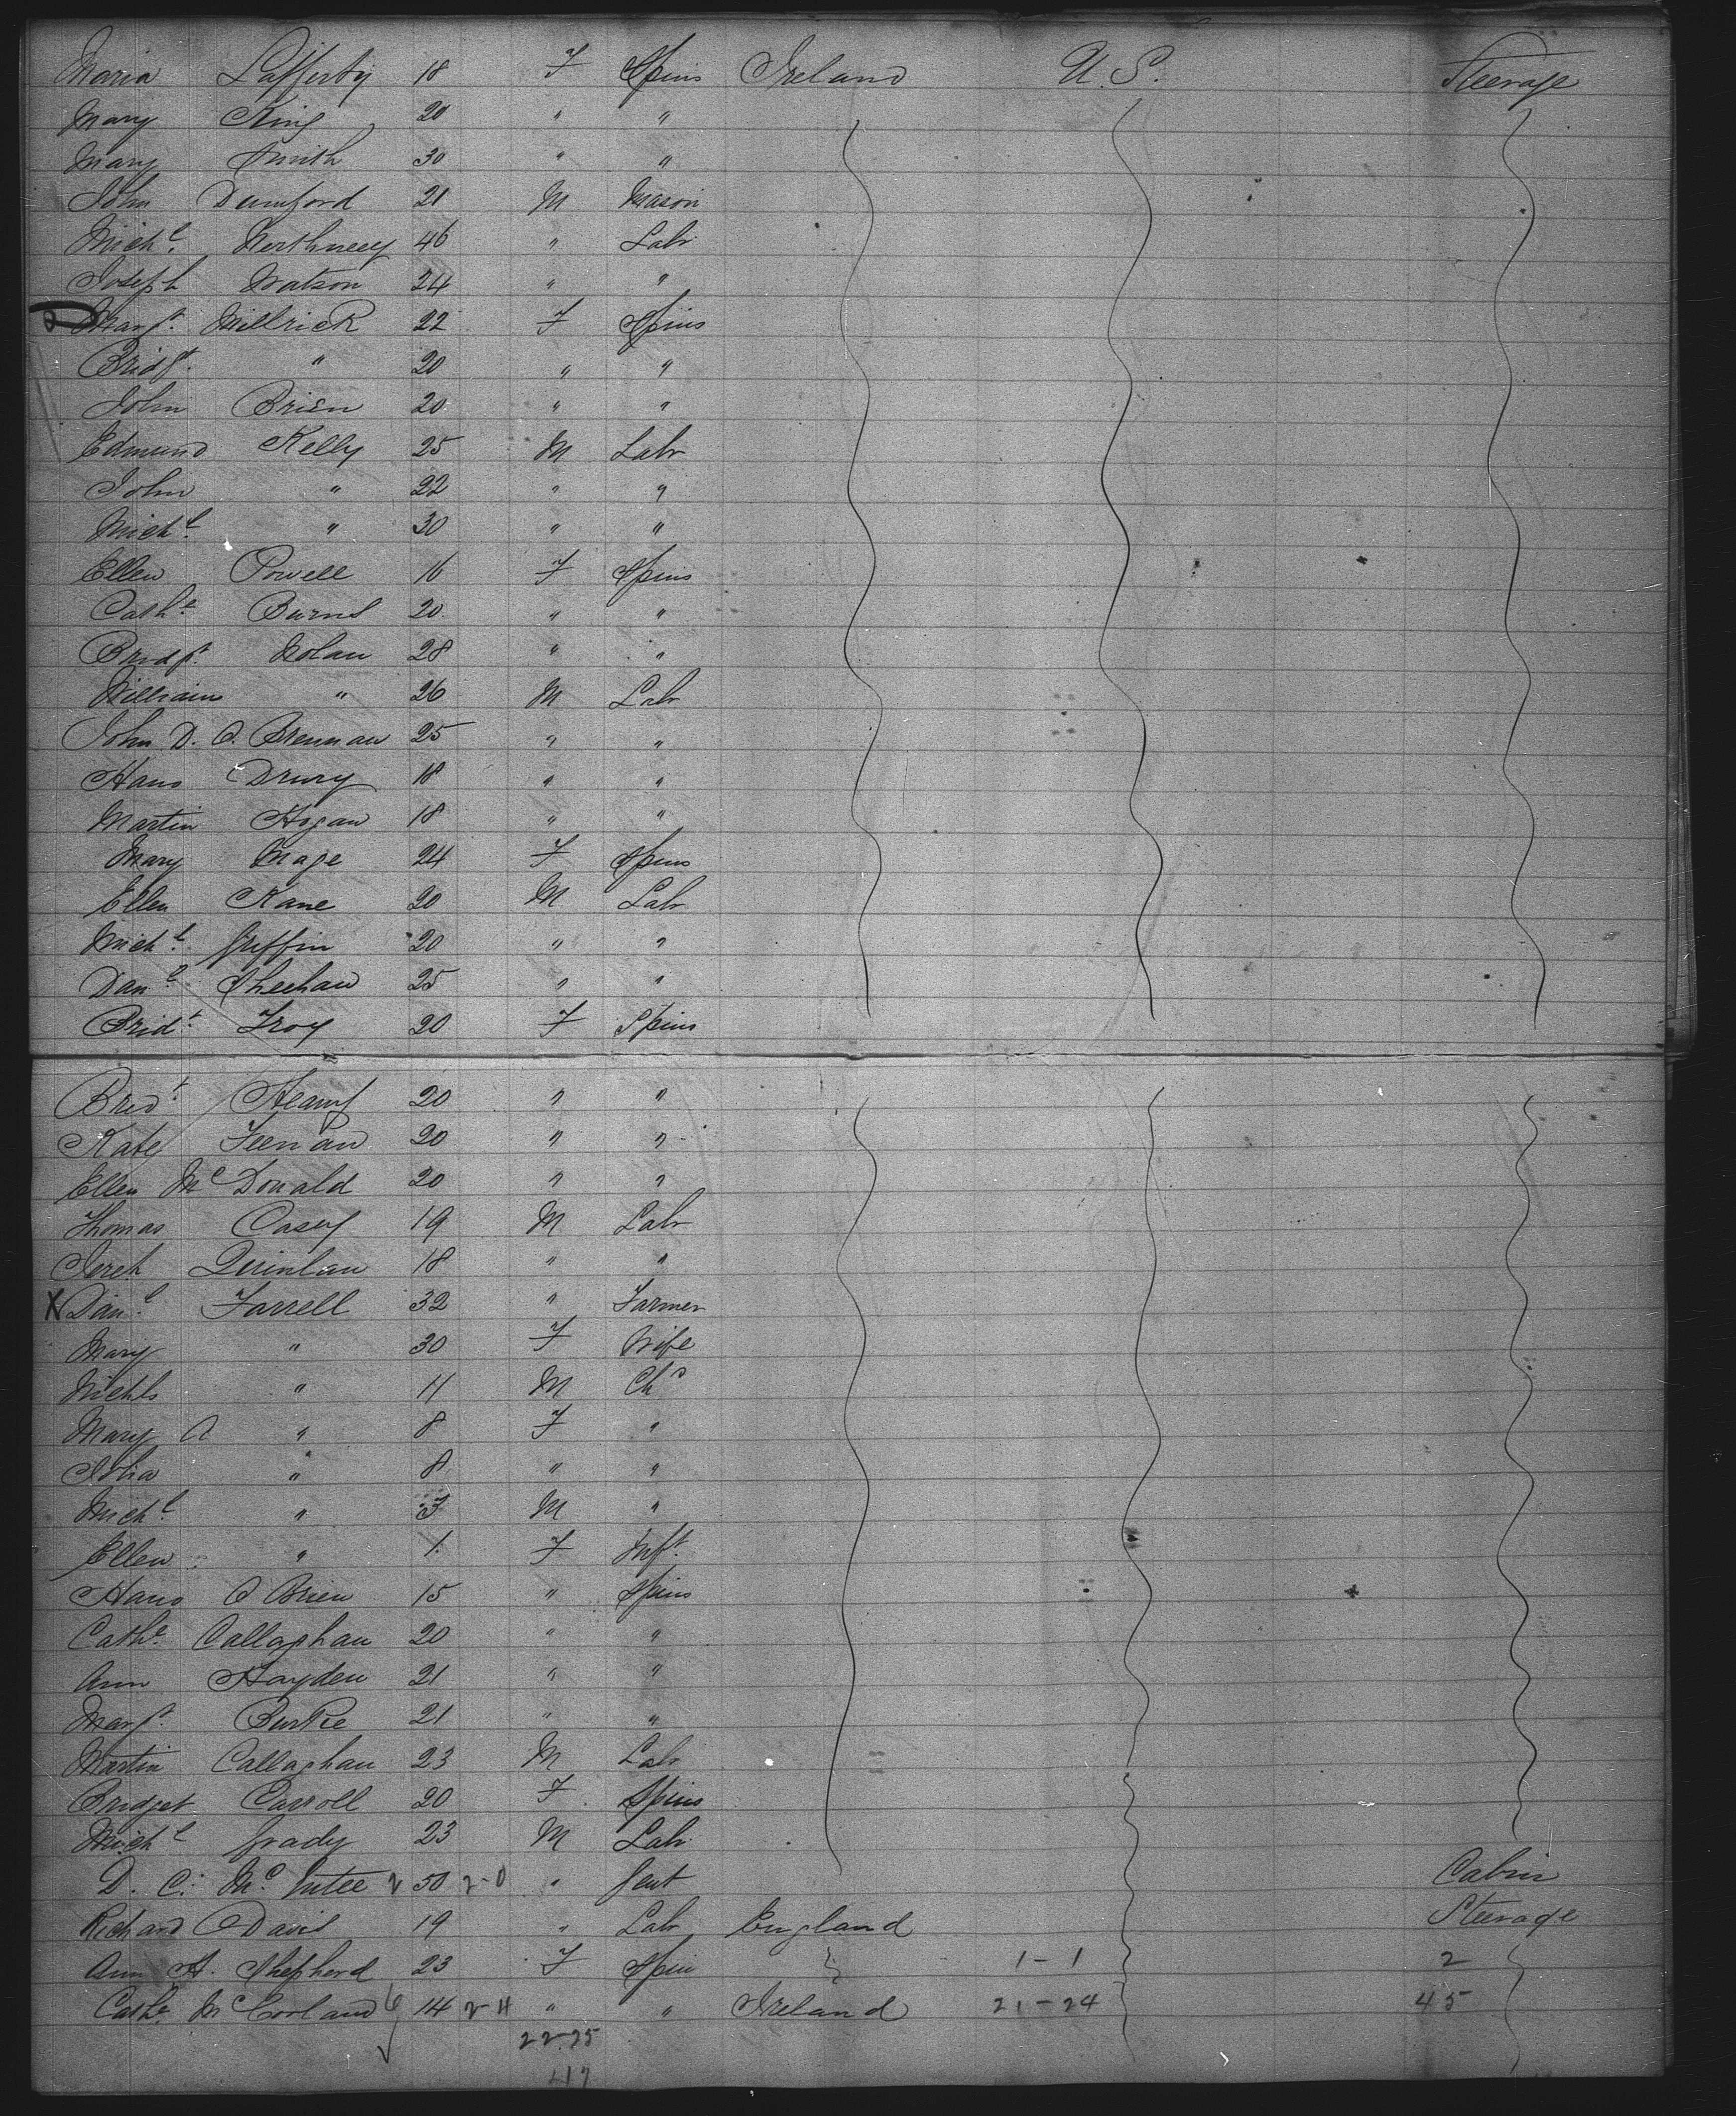 Maria Lafferty 18 F Spins Ireland U.S. Steerage
Mary King 20 " "
Mary Smith 30 " "
John Dumford 21 M Mason
Michl. 46 " Labr
Joseph Watson 24 " "
Margt. Millrick 22 F Spins
Bridgt. " 20 " "
John Brien 20 " "
Edmund Kelly 25 M Labr
John " 22 " "
Michl. " 30 " "
Ellen Powell 16 F Spins
Cathe. Burns 20 " "
Bridgt. Nolan 28 " "
William " 26 M Labr
John D. O. Brennan 25 " "
Hans Drury 18 " "
Martin Hogan 18 " "
Mary Mage 24 F Spins
Ellen Kane 20 M Labr
Michl. Griffin 20 " "
Danl. Sheehan 25 " "
Bridt. Troy 20 F Spins
Bridt. 20 " "
Kate Feenan 20 " "
Ellen McDonald 20 " "
Thomas Casey 19 M Labr
Jereh Quinlan 18 " "
X Danl. Farrell 32 " Farmer
Mary " 30 F Wife
Nichls " 11 M Chd
Mary A " 8 F "
" 8 " "
Michl. " 3 M "
Ellen " 1 F Inft.
Hans O Brien 15 " Spins
Cathe. Callaghan 20 " "
Ann Hayden 21 " "
Margt. Burke 21 " "
Martin Callaghan 23 M Labr
Bridget Carroll 20 F Spins
Michl Grady 23 M Labr
D. C. Mc. Entee 2 50 2-0 " Gent Cabin
Richard Davis 19 " Labr England Steerage
Ann H. Shepherd 23 F Spin 1-1 2
Cathe. McCorland 6 14 2-4 " " Ireland 21-24 45
22-25
47